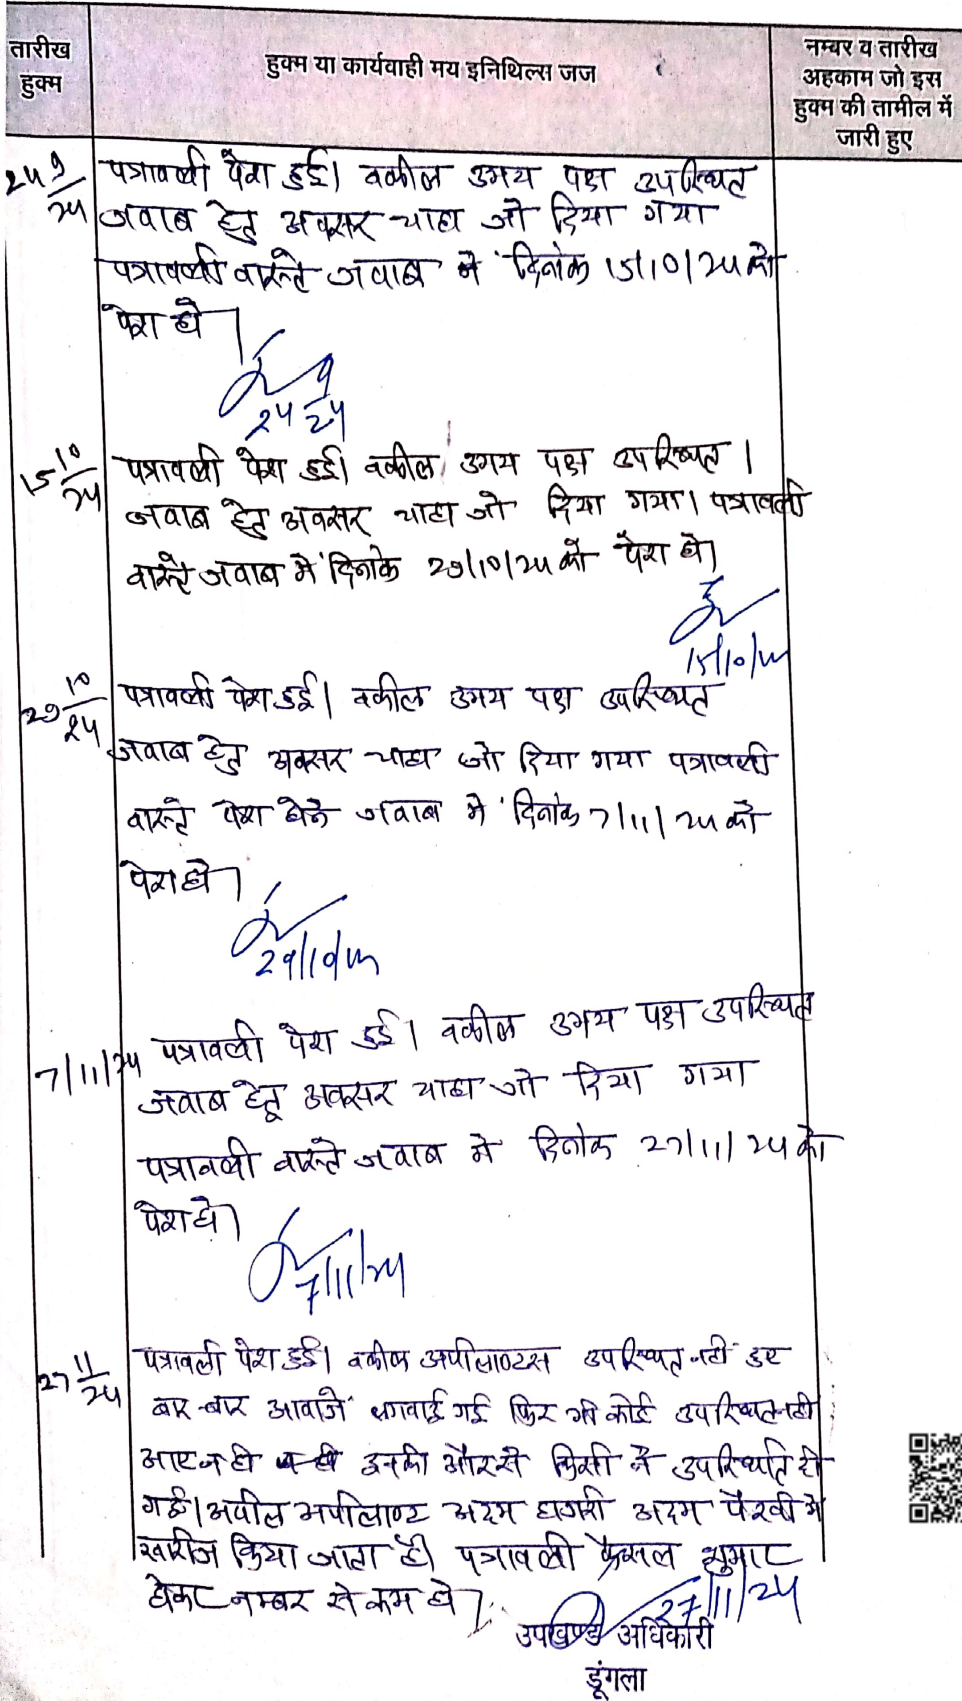 तारीख
हुक्म
हुक्म या कार्यवाही मय इनिथिल्स जज
नम्बर व तारीख
अहकाम जो इस
हुक्म की तामील में
जारी हुए
24 9/24 पत्रावली पेश हुई। वकील उभय पक्ष उपस्थित
जवाब हेतु अवसर चाहा जो दिया गया
पत्रावली वास्ते जवाब में दिनांक 15/10/24 को
पेश हो।
24 9/24
15 10/24 पत्रावली पेश हुई। वकील उभय पक्ष उपस्थित।
जवाब हेतु अवसर चाहा जो दिया गया। पत्रावली
वास्ते जवाब में दिनांक 29/10/24 को पेश हो।
15/10/24
29 10/24 पत्रावली पेश हुई। वकील उभय पक्ष उपस्थित
जवाब हेतु अवसर चाहा जो दिया गया पत्रावली
वास्ते पेश होने जवाब में दिनांक 7/11/24 को
पेश हो।
29/10/24
7/11/24 पत्रावली पेश हुई। वकील उभय पक्ष उपस्थित
जवाब हेतू अवसर चाहा जो दिया गया
पत्रावली वास्ते जवाब में दिनांक 27/11/24 को
पेश हो।
7/11/24
27 11/24 पत्रावली पेश हुई। वकील अपीलाण्टस उपस्थित नहीं हुए
बार-बार आवाजें लगवाई गई फिर भी कोई उपस्थित नहीं
आए न ही इनकी और से किसी ने उपस्थिति दी
गई। अपील अपीलाण्ट अदम हाजरी अदम पैरवी में
खारीज किया जाता है। पत्रावली फैसल शुमार
होकर नम्बर से कम हो।
27/11/24
उपखण्ड अधिकारी
डूंगला